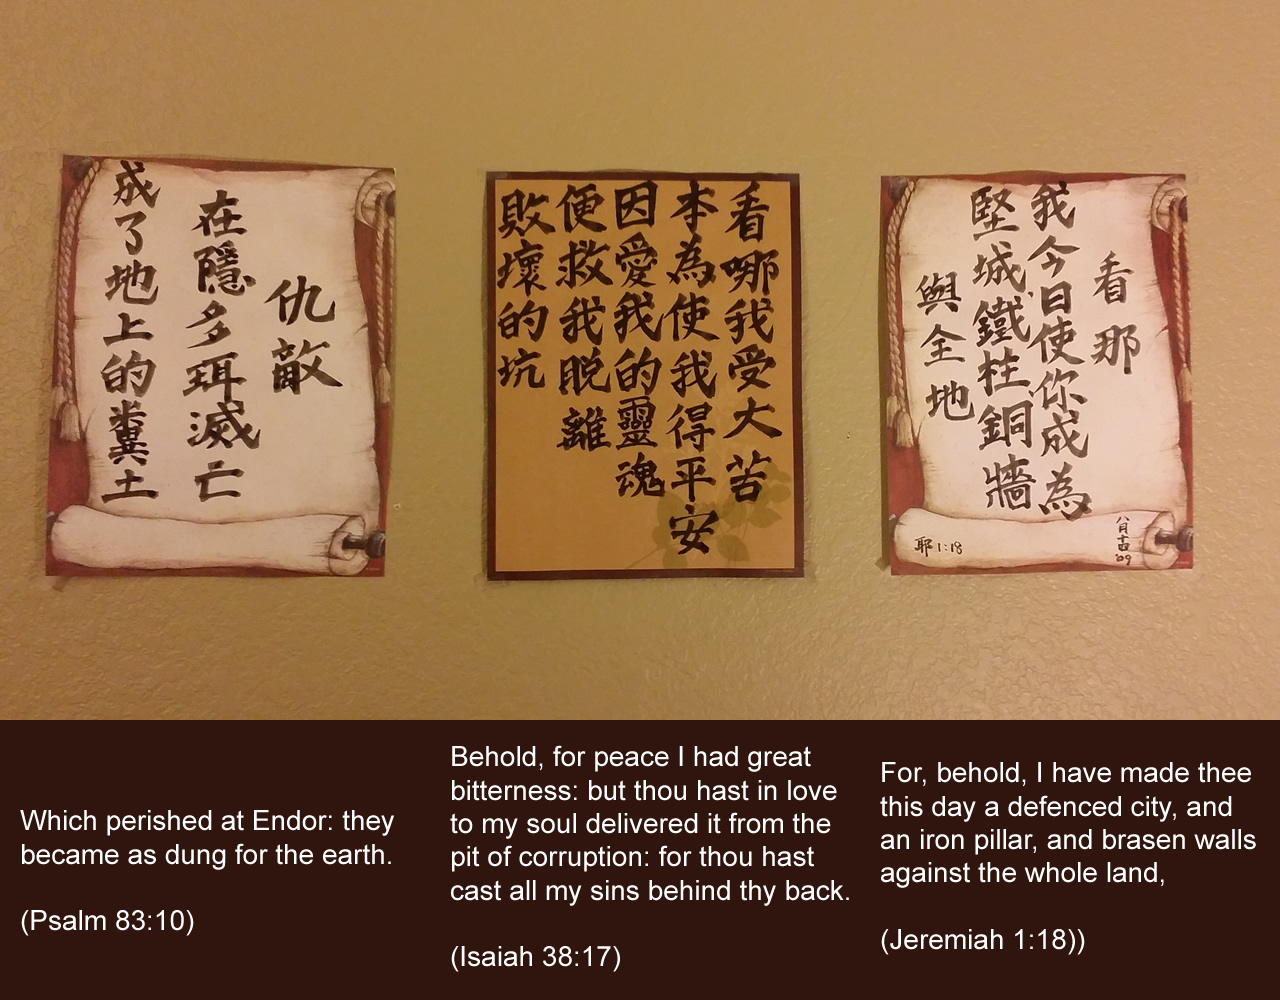 仇敵
在隱多珥滅亡
成了地上的糞土
看哪我受大苦
本為使我得平安
因愛我的靈魂
便救我脱離
敗壞的坑
看那
我今日使你成為
堅城鐵柱銅牆
與全地
耶 1:18
八月十四 '09
Which perished at Endor: they
became as dung for the earth.
(Psalm 83:10)
Behold, for peace I had great
bitterness: but thou hast in love
to my soul delivered it from the
pit of corruption: for thou hast
cast all my sins behind thy back.
(Isaiah 38:17)
For, behold, I have made thee
this day a defenced city, and
an iron pillar, and brasen walls
against the whole land,
(Jeremiah 1:18))